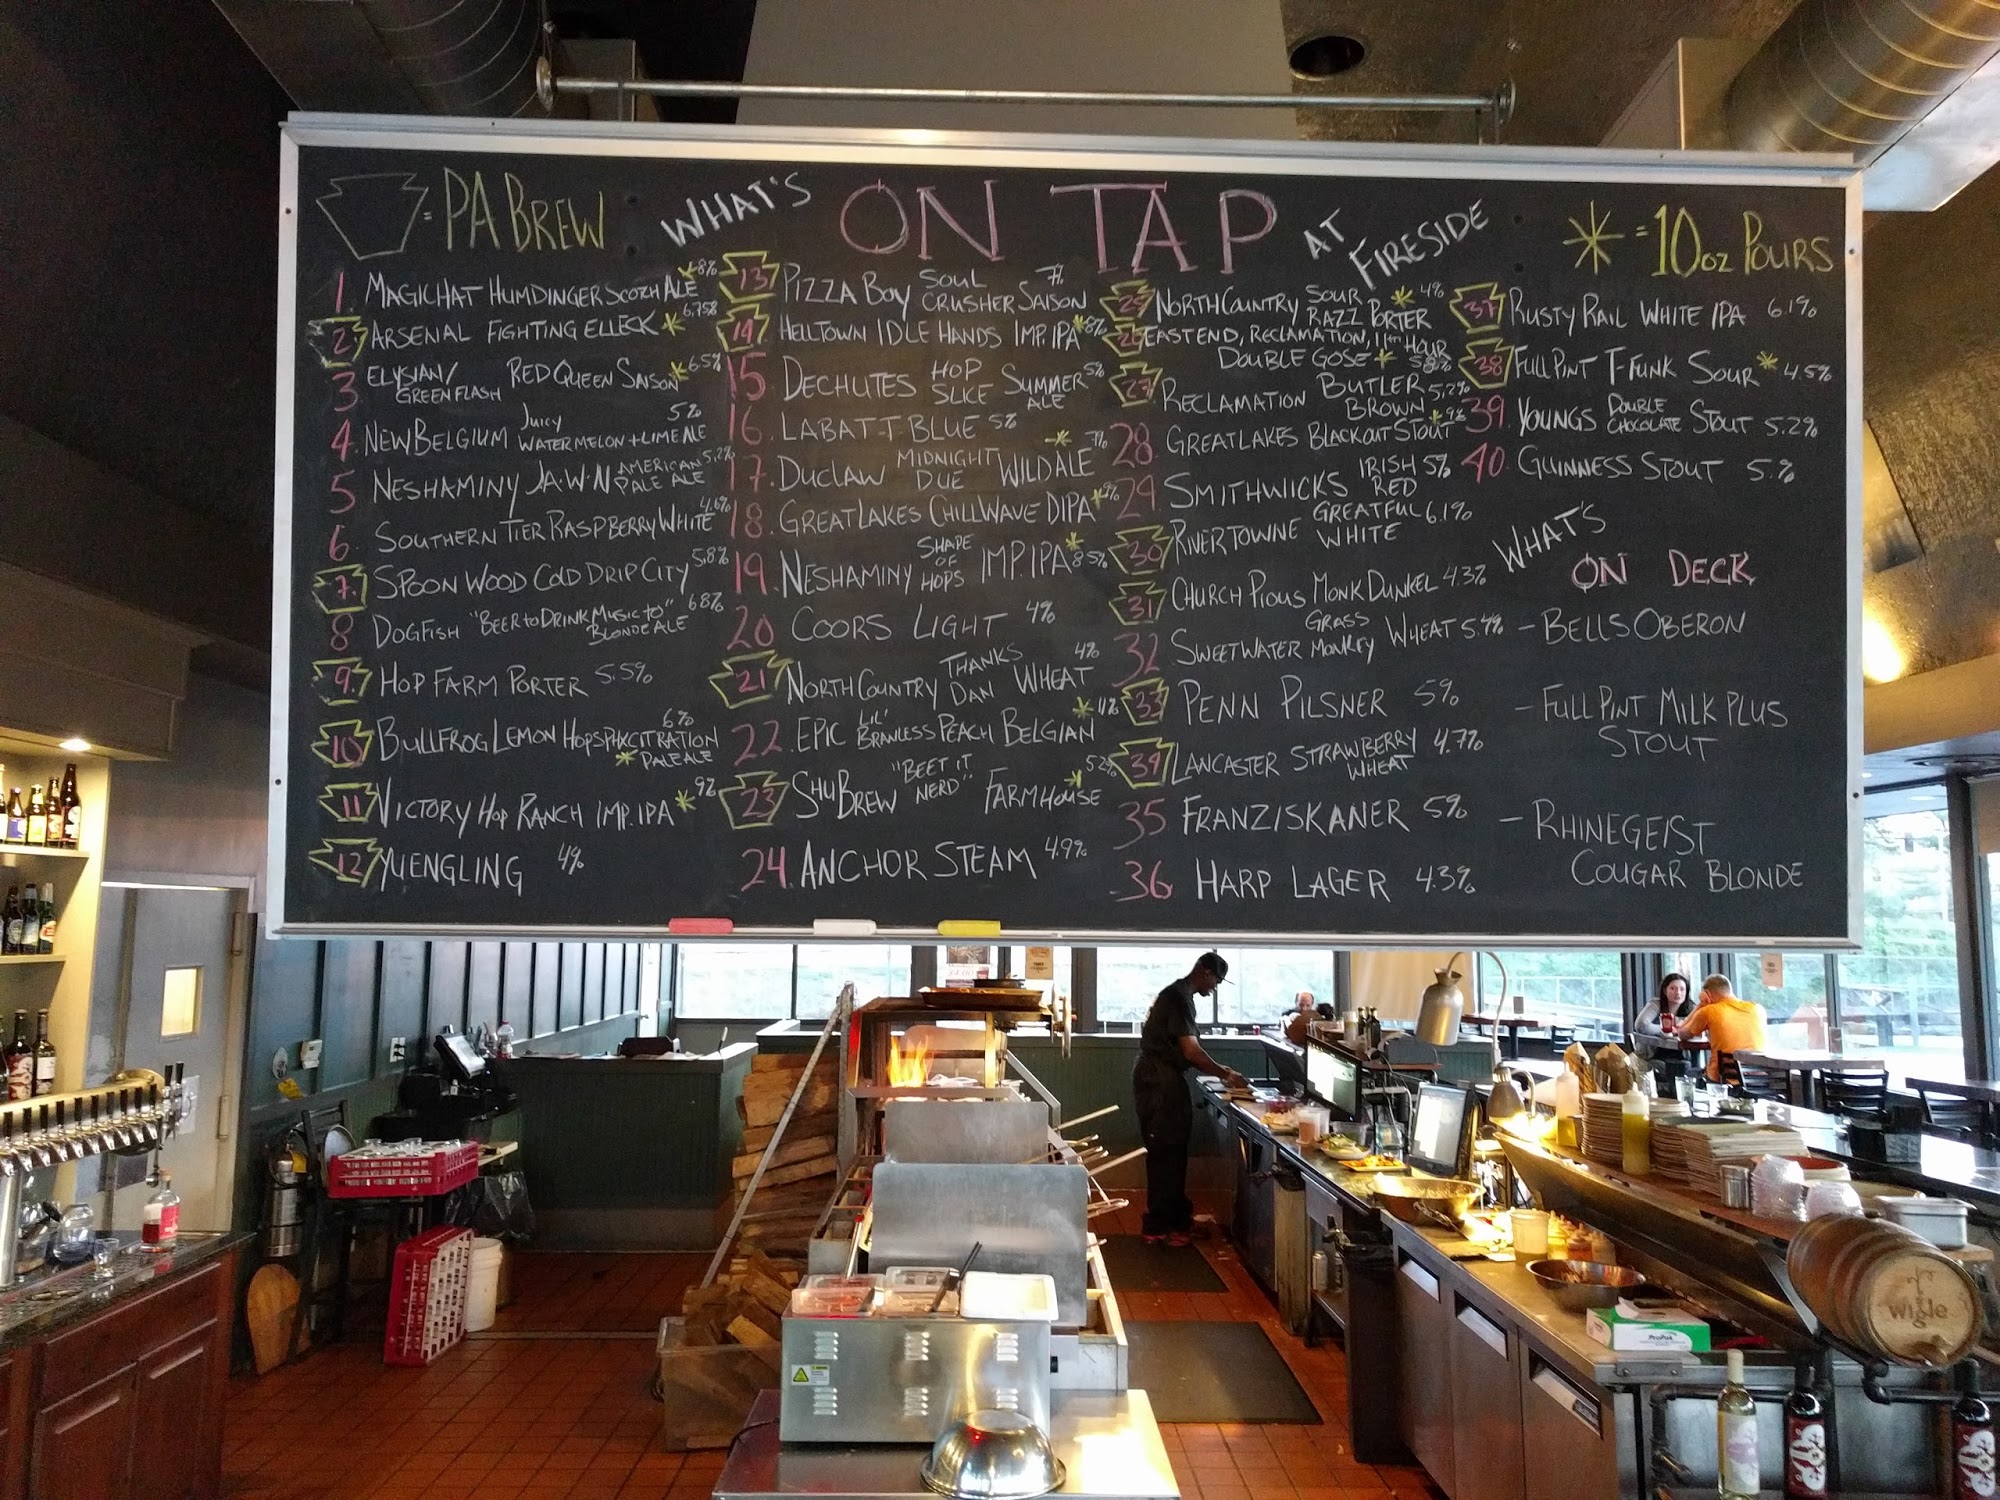 = PA BREW
WHAT'S
ON TAP
AT
FIRESIDE
* = 10oz POURS
1. MAGICHAT HUMDINGER SCOTCH ALE * 8%
2. ARSENAL FIGHTING ELLECK * 6.75%
3 ELYSIAN/
GREENFLASH RED QUEEN SAISON * 6.5%
4. NEW BELGIUM JUICY
WATERMELON + LIME ALE 5%
5 NESHAMINY J.A.W.N AMERICAN
PALE ALE 5.2%
6. SOUTHERN TIER RASPBERRY WHITE 4.6%
7. SPOONWOOD COLD DRIP CITY 5.8%
8 DOGFISH "BEER TO DRINK MUSIC TO"
BLONDE ALE 6.8%
9. HOP FARM PORTER 5.5%
10. BULLFROG LEMON HOPSPHXCITRATION
* PALE ALE 6%
11 VICTORY HOP RANCH IMP. IPA * 9%
12. YUENGLING 4%
13 PIZZA BOY SOUL
CRUSHER SAISON 7%
14. HELLTOWN IDLE HANDS IMP. IPA * 8%
15 DECHUTES HOP
SLICE SUMMER
ALE 5%
16. LABATT BLUE 5%
17. DUCLAW MIDNIGHT
DUE WILD ALE * 7%
18. GREAT LAKES CHILLWAVE DIPA * 9%
19. NESHAMINY SHAPE
OF
HOPS IMP. IPA * 8.5%
20 COORS LIGHT 4%
21 NORTH COUNTRY THANKS
DAN WHEAT 4%
22. EPIC LIL'
BRAINLESS PEACH BELGIAN * 11%
23 SHUBREW "BEET IT
NERD" FARMHOUSE * 5.2%
24. ANCHOR STEAM 4.9%
25 NORTH COUNTRY SOUR
RAZZ PORTER * 4%
26 EAST END, RECLAMATION, 11TH HOUR
DOUBLE GOSE *
27 RECLAMATION BUTLER
BROWN 5.2%
28 GREAT LAKES BLACKOUT STOUT * 9%
29 SMITHWICKS IRISH
RED 5%
30 RIVERTOWNE GREATFUL
WHITE 6.1%
31 CHURCH PIOUS MONK DUNKEL 4.3%
32 SWEETWATER GRASS
MONKEY WHEAT 5.4%
33 PENN PILSNER 5%
34 LANCASTER STRAWBERRY
WHEAT 4.7%
35 FRANZISKANER 5%
36 HARP LAGER 4.3%
37 RUSTY RAIL WHITE IPA 6.1%
38 FULL PINT T-FUNK SOUR * 4.5%
39 YOUNGS DOUBLE
CHOCOLATE STOUT 5.2%
40. GUINNESS STOUT 5.%
WHAT'S
ON DECK
- BELLS OBERON
- FULL PINT MILK PLUS
STOUT
- RHINEGEIST
COUGAR BLONDE
wigle